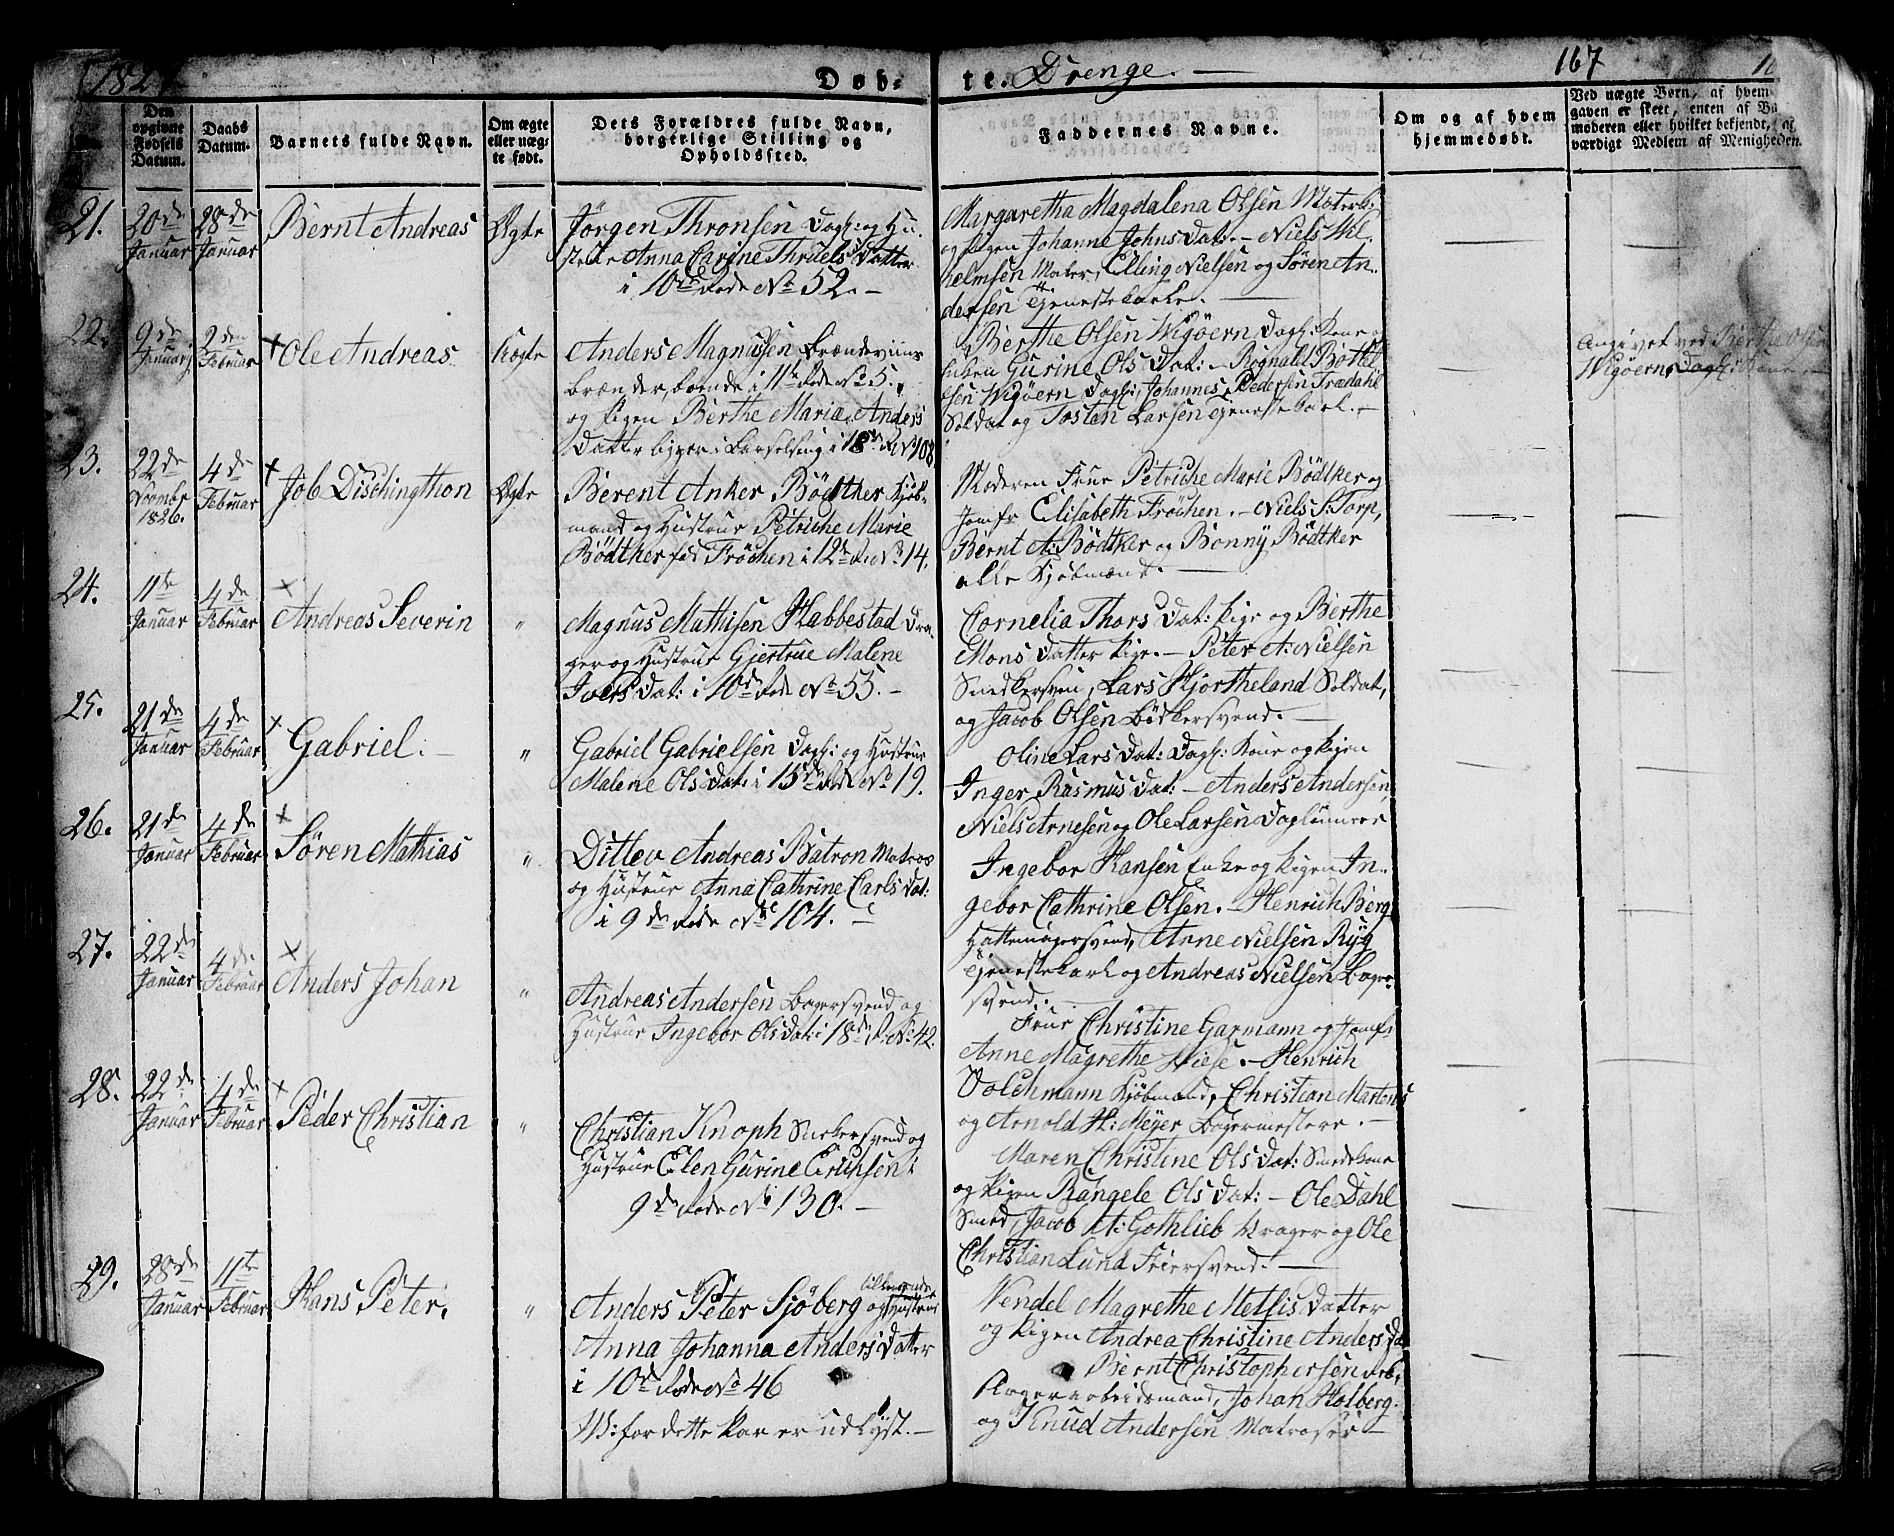 1827.
Døb-
te. Drenge.
167
Den opgivne Fødsels Datum.
Daabs Datum.
Barnets fulde Navn.
Om ægte eller uægte født.
Dets Forældres fulde Navn, borgerlige Stilling og Opholdssted.
Faddernes Navne.
Om og af hvem hjemmedøbt.
Ved uægte Børn, af hvem
gaven er skeet, enten af
moderen eller hvilket bekjendt, og
værdigt Medlem af Menigheden.
21.
20de Januar
28de Januar
Bernt Andreas
Ægte
Jörgen Thronsen Dagl: og Hu-
strue Anna Carine Thruels Datter
i 10de Rode No 52. -
Margaretha Magdalena Olsen
og Pigen Johanne Johns Dat: - Niels Wil-
helmsen Maler, Elling Nielsen og Sören An-
dersen Tjenestekarle.
22.
9de Januarj
2den Februar
+ Ole Andreas
Uægte
Anders Magnussen, Brændeviins
Brænder, boende i 11te Rode No 5.
og Pigen Berthe Maria Anders
Datter ligger i Barselseng i 18de R. No 108
Berthe Olsen Wigöern Dagl: Kone og
Pigen Gurine Ols Dat: - Regnald Bottel
sen Wigöern Dagl:, Johannes Pedersen Trædahl
Soldat og Tosten Larsen Tjenestekarl. -
Angivet ved Berthe Olsen
Wigöern, Dagl: Kone. -
23.
22de Novembr 1826.
4de Februar
+ Job Dischingthon
Ægte
Berent Anker Bödtker Kjöb-
mand og Hustrue Petriche Marie
Bödtker föd Fröchen i 12te R. No 14.
Moderen Frue Petriche Marie Bödtker og
Jomfr Elisabeth Fröchen. - Niels S: Torp,
Bernt A: Bödtker og Bonny Bödtker
alle Kjöbmænd.
24.
11te Januar
4de Februar
+ Andreas Severin
"
Magnus Mathisen Habbestad Dra-
ger og Hustrue Gjertrue Malene
Ivers Dat: i 10de Rode No 55. -
Cornelia Thors Dat: Pige og Berthe
Mons Datter Pige. - Peter A: Nielsen
Snedkersven, Lars Hjortheland Soldat,
og Jacob Olsen Bödkersvend.
25.
21de Januar
4de Februar
+ Gabriel. -
"
Gabriel Gabrielsen Dagl: og Hustrue
Malene Ols Dat: i 15de Rode No 19.
Oline Lars Dat: Dagl: Kone og Pigen
Inger Rasmus Dat: - Anders Andersen,
Niels Arnesen og Ole Larsen Daglönnere
26.
21de Januar
4de Februar
+ Sören Mathias
"
Ditlev Andreas Batron Matros
og Hustrue Anna Cathrine Carls Dat:
i 9de Rode No 104. -
Ingebor Hansen Enke og Pigen In-
gebor Cathrine Olsen. - Henrich Berg
Hattemagersvend, Arne Nielsen Ryg
Tjenestekarl og Andreas Nielsen Bager-
svend.
27.
22de Januar
4de Februar
+ Anders Johan
"
Andreas Andersen Bagersvend og
Hustrue Ingebor Ols Dat: i 18de R. No 42.
Frue Christine Garmann og Jomfr
Anne Magrethe Wiese. - Henrich
Volchmann Kjöbmand, Christian Martens
og Arnold H: Meyer Bagermestere. -
28.
22de Januar
4de Februar
+ Peder Christian
"
Christian Knoph Snekersvend og
Hustrue Elen Gurine Erichsen i
9de Rode No 130. -
Maren Christine Ols Dat: Smedekone
og Pigen Rangele Ols Dat: - Ole Dahl
Smed, Jacob A: Gothlieb Drager og Ole
Christian Lund Feiersvend. -
29.
28de Januar
11te Februar
Hans Peter.
"
Anders Peter Sjöberg og Hustrue
Anna Johanna Anders Datter
i 10de Rode No 46
NB: for dette Par er udlyst. -
Wendel Magrethe Metlis Datter
og Pigen Andrea Christine Anders Dat
Bernt Christophersen Arb.
Arbeidsmand, Johan Holberg
og Knud Andersen Matroser -